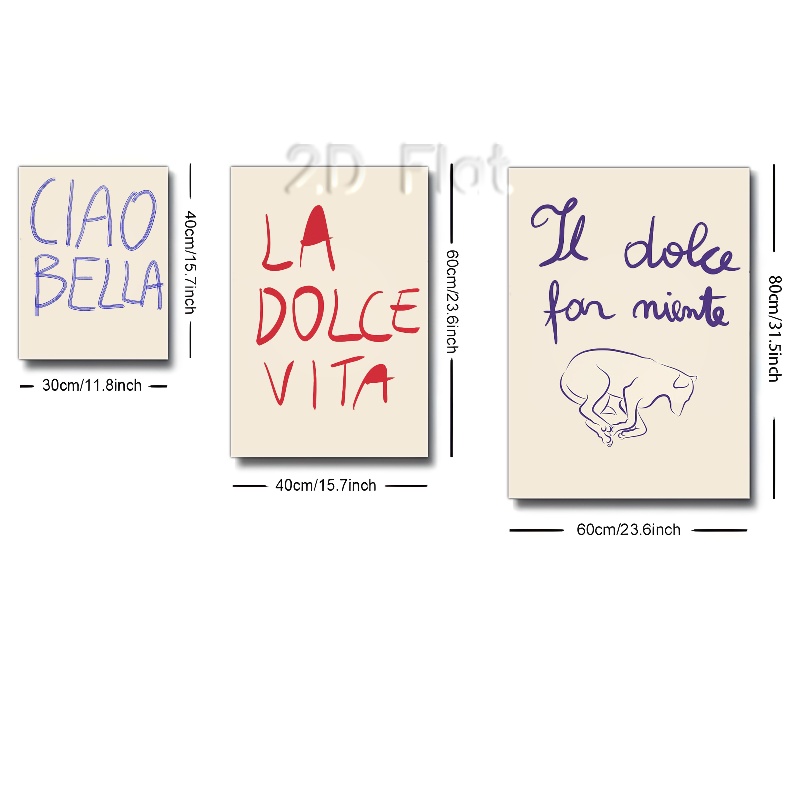 2D Flat
CIAO
BELLA
40cm/15.7inch
30cm/11.8inch
LA
DOLCE
VITA
60cm/23.6inch
40cm/15.7inch
Il dolce
far niente
80cm/31.5inch
60cm/23.6inch